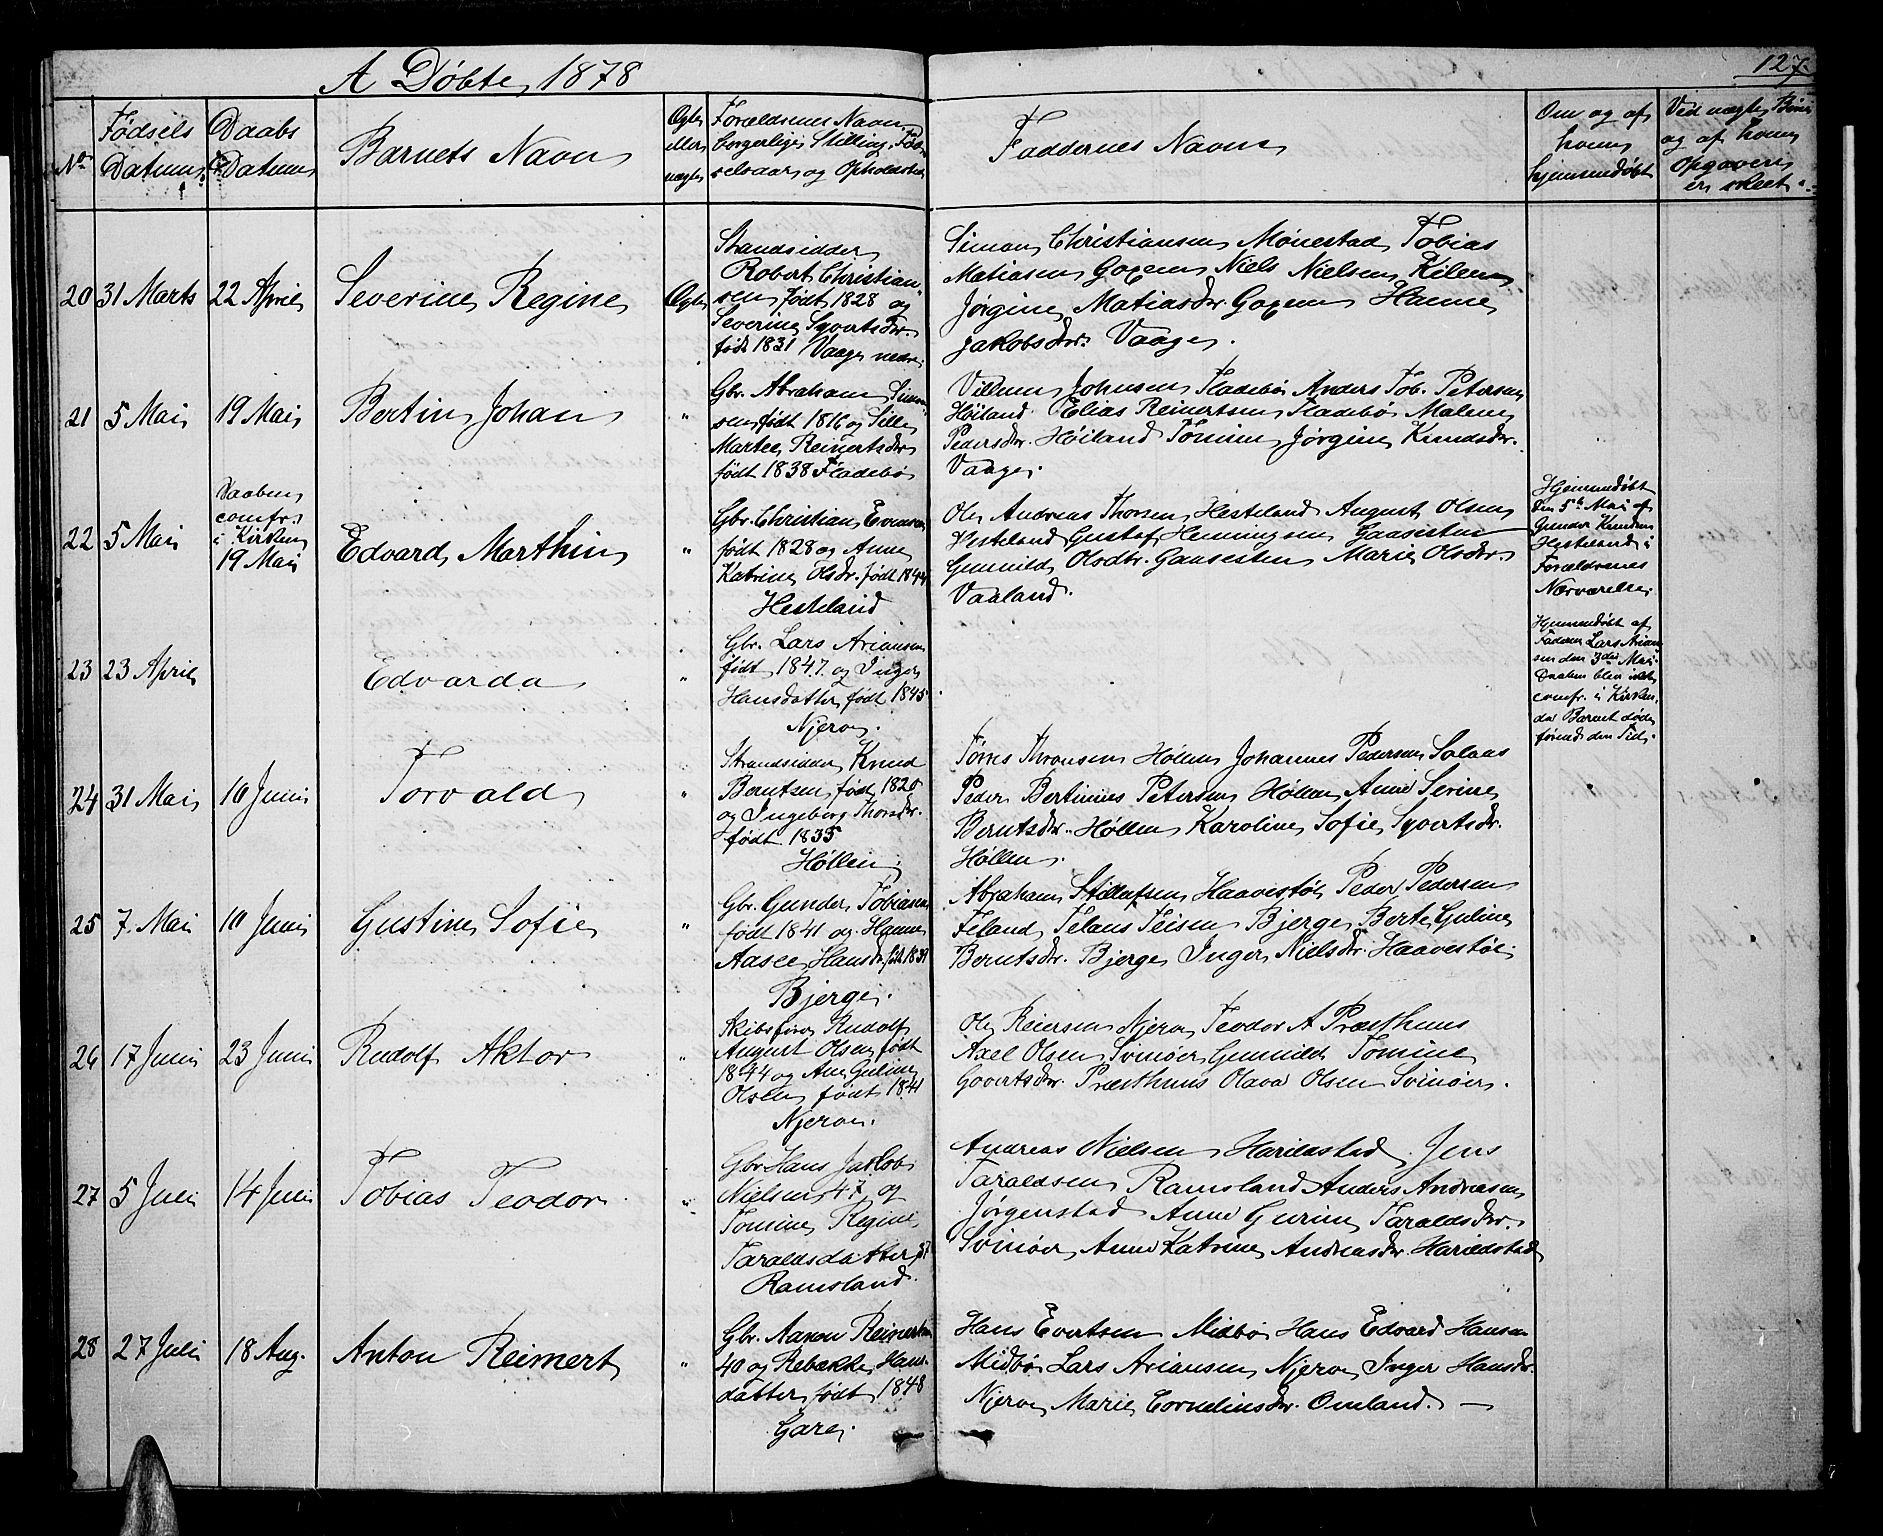 A Døbte, 1878
127.
No
Fødsels Datum
Daabs Datum
Barnets Navn
Ægte eller uægte
Forældrenes Navn, borgerlige Stilling, Fødselsaar og Opholdssted
Faddernes Navne
Om og af hvem hjemmedøbt
Ved uægte Børn og af hvem Opgaven er skeet.
20 31 Marts 22 April Severine Regine Ægte
Strandsidder
Robert Christian-
sen født 1828 og
Severine Syvertsdr.
født 1831 Vaage nedre
Simon Christiansen Mönestad, Tobias
Matiasen Goxem Niels Nielsen Kilen
Jørgine Matiasdr. Goxem Hanne
Jakobsdr. Vaage.
21 5 Mai 19 Mai Bertin Johan "
Gbr. Abraham Simon-
sen født 1816 og Sille
Martee Reinertsdr
født 1838 Fladebø
Villum Johnsen Fladebø Anders Tob. Petersen
Høiland Elias Reinertsen Fladebø Malene
Pedersdr. Høiland Tomine Jørgine Knudsdr.
Vaage.
22 5 Mai
Daaben
comfr.
i Kirken
19 Mai
Edvard Marthin "
Gbr. Christian Evensen
født 1828 og Anne
Katrine Olsdr. født 1844
Hesteland
Ole Andreas Thorsen Hesteland August Olsen
Hesteland Gustaf Henningsen Gaasesten
Gunnild Olsdtr. Gaasesten Marie Olsdr.
Vaaland.
Hjemmedøbt
den 5te Mai af
Gunder Knudsen
Hesteland i
Forældrenes
Nærværelse
23 23 April Edvarda "
Gbr. Lars Ariansen
født 1847. og Inger
Hansdatter født 1845
Njerve.
Hjemmedøbt af
Faderen Lars Arian-
sen den 3die Mai.
Daaben blev ikke
comfr. i Kirken,
da Barnet døde
forinden den Tid.
24 31 Mai 10 Juni Torvald "
Strandsidder Knud
Berntsen født 1820
og Ingeborg Thorsdr.
født 1835
Høllen
Tørres Thronsen Høllen Johannes Pedersen Salaas
Peder Bertinius Petersen Høllen Anne Serine
Berntsdr. Høllen Karoline Sofie Syvertsdr.
Høllen.
25 7. Mai 10 Juni Gustine Sofie "
Gbr. Gunder Tobiasen
født 1841 og Hanne
Aasee Hansdr. født 1839
Bjerge.
Abraham Haavestøl Peder Pedersen
Feland Teisen Bjerge Berte Guline
Berntsdr. Bjerge Inger Nielsdr. Haavestøl
26 17 Juni 23 Juni Rudolf Aktor "
Skibsfører Rudolf
August Olsen født
1844 og Ane Guline
Olsen født 1841
Njerve.
Ole Reiersen Njerve Teodor A Præsthuus
Axel Olsen Svinøer Gunnild Tomine
Govertsdr. Præsthuus Olava Olsen Svinøer.
27 5 Juli 14 Juli Tobias Teodor "
Gbr Hans Jakob
Nielsen 47 og
Tomine Regine
Taraldsdatter
Ramsland.
Andreas Nielsen Harilstad Jens
Taraldsen Ramsland Anders Andreasen
Jørgenstad Anne Gurine Taraldsdr.
Svinøer Anne Katrine Andreasdr. Harildstad
28 27 Juli 18 Aug. Anton Reimert "
Gbr. Aanon Reimertsen
40 og Rebække Hans-
datter født 1848
Gare.
Hans Evertsen Midbø Hans Edvard Hansen
Midbø Lars Ariansen Njerve Inger Hansdr.
Njerve Marie Cornelinsdr. Omland. —